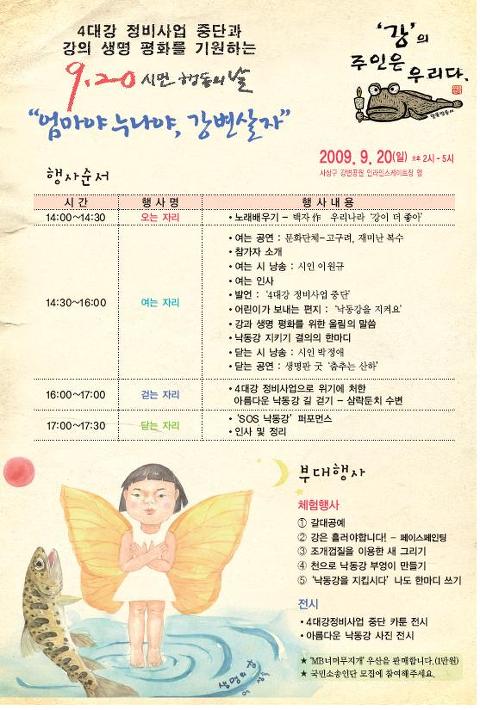 4대강 정비사업 중단과
강의 생명 평화를 기원하는
9.20 시민 행동의 날
"엄마야 누나야, 강변살자"
'강'의
주인은
우리다.
2009. 9. 20(일) 오후 2시 - 5시
사상구 강변공원 인라인스케이트장 옆
행사순서
시 간 행 사 명 행 사 내 용
14:00~14:30 오는 자리 • 노래배우기 - 백자 作 우리나라 '강이 더 좋아'
14:30~16:00 여는 자리
• 여는 공연 : 문화단체-고구려, 재미난 복수
• 참가자 소개
• 여는 시 낭송 : 시인 이원규
• 여는 인사
• 발언 : '4대강 정비사업 중단'
• 어린이가 보내는 편지 : '낙동강을 지켜요'
• 강과 생명 평화를 위한 울림의 말씀
• 낙동강 지키기 결의의 한마디
• 닫는 시 낭송 : 시인 박정애
• 닫는 공연 : 생명판 굿 '춤추는 산하'
16:00~17:00 걷는 자리
• 4대강 정비사업으로 위기에 처한
아름다운 낙동강 길 걷기 - 삼락둔치 수변
17:00~17:30 닫는 자리
• 'SOS 낙동강' 퍼포먼스
• 인사 및 정리
부대행사
체험행사
① 갈대공예
② 강은 흘러야합니다! - 페이스페인팅
③ 조개껍질을 이용한 새 그리기
④ 천으로 낙동강 부엉이 만들기
⑤ '낙동강을 지킵시다' 나도 한마디 쓰기
전시
• 4대강정비사업 중단 카툰 전시
• 아름다운 낙동강 사진 전시
★ 'MB너머무지개' 우산을 판매합니다.(1만원)
★ 국민소송인단 모집에 참여해주세요.
생명의 강